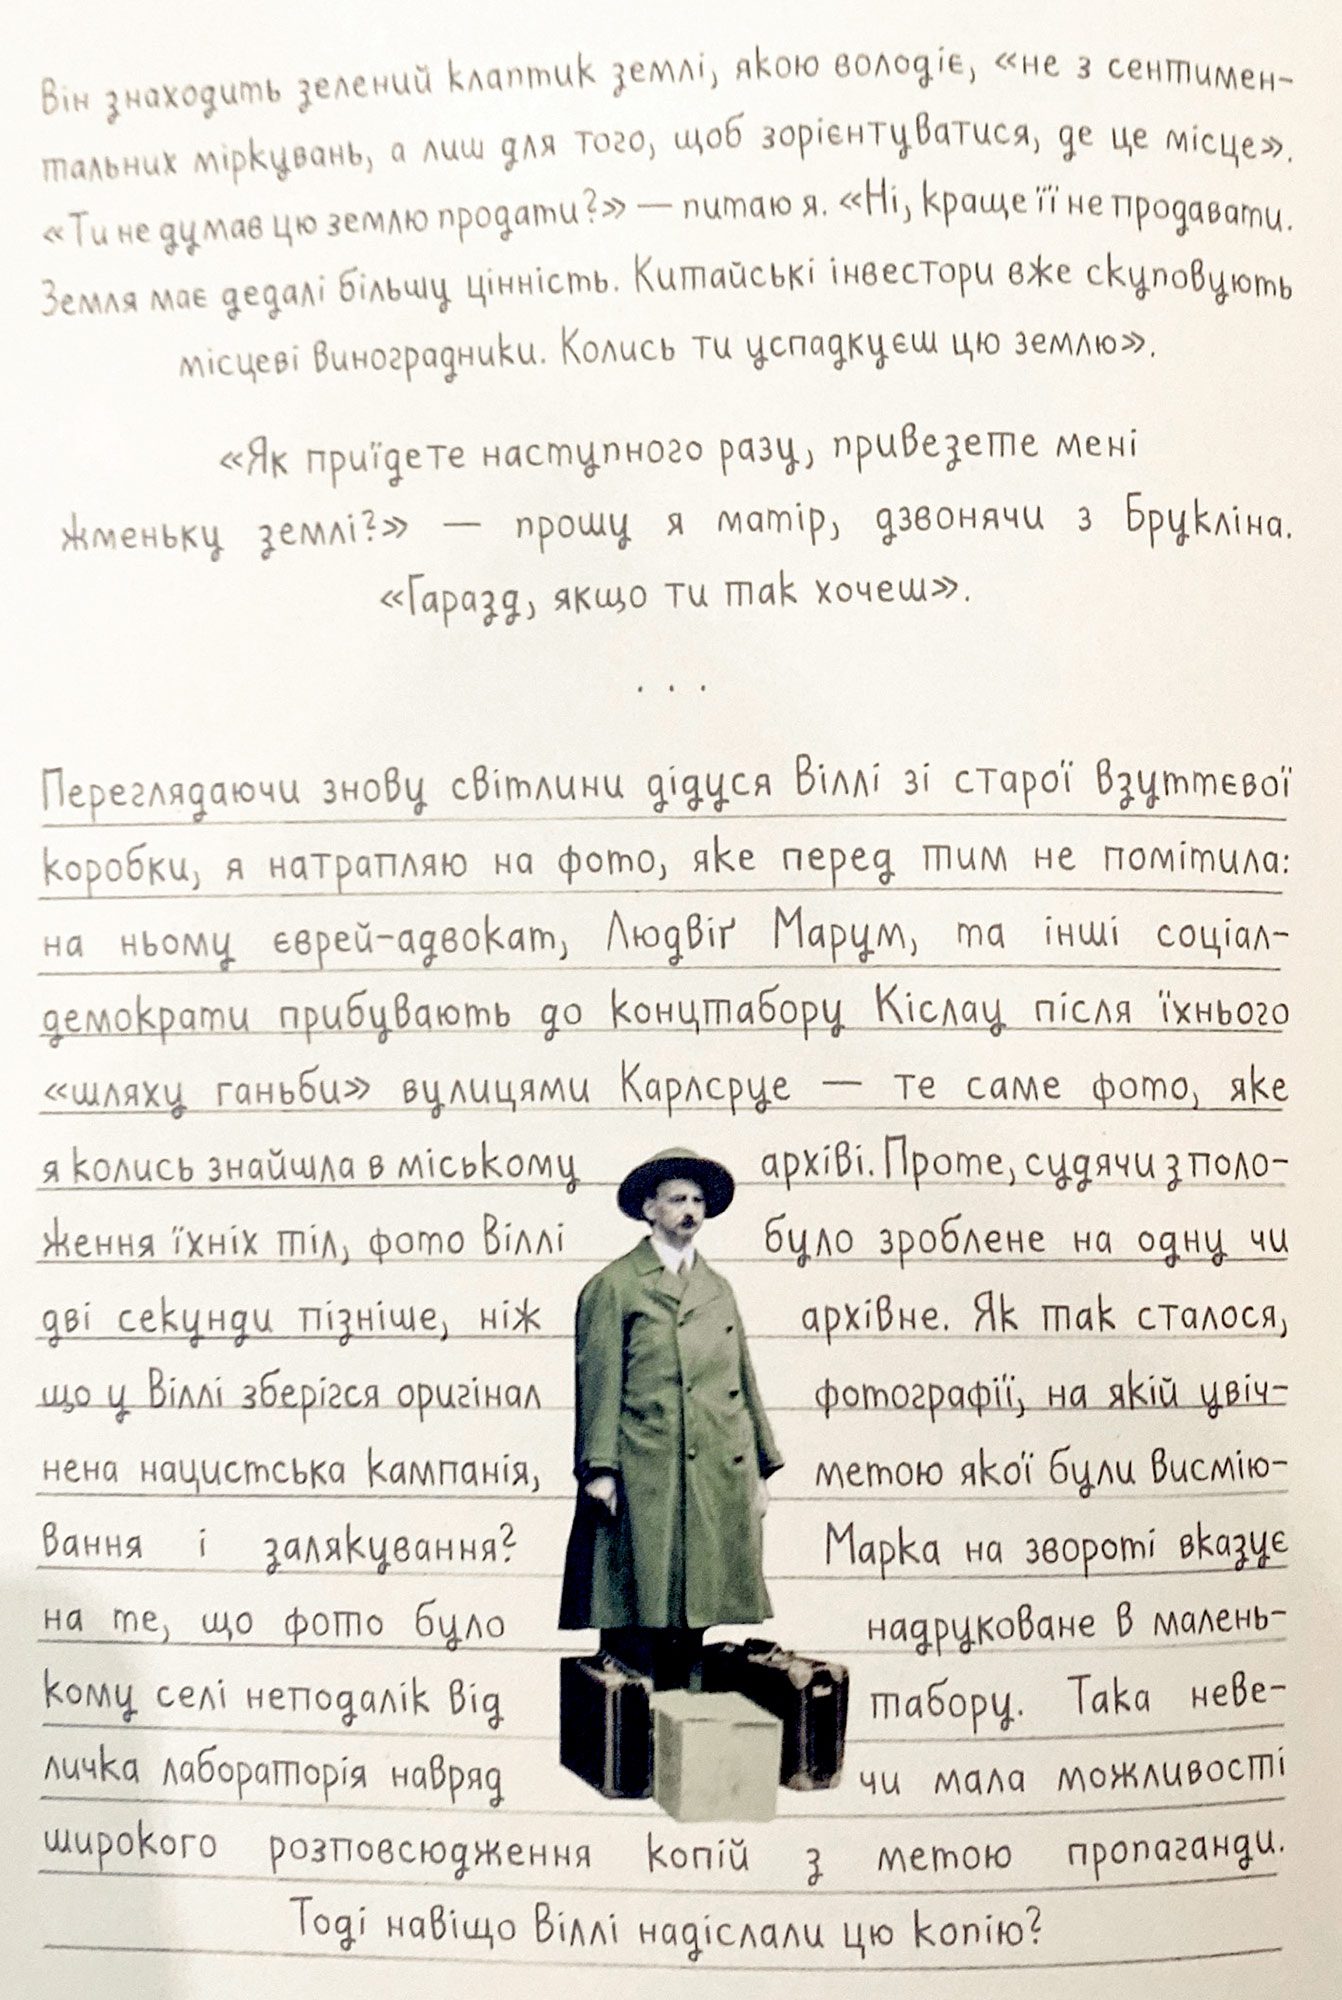 Він знаходить зелений клаптик землі, якою володіє, «не з сентимен-
тальних міркувань, а лиш для того, щоб зорієнтуватися, де це місце».
«Ти не думав цю землю продати?» — питаю я. «Ні, краще її не продавати.
Земля має дедалі більшу цінність. Китайські інвестори вже скуповують
місцеві виноградники. Колись ти успадкуєш цю землю».
«Як приїдете наступного разу, привезете мені
жменьку землі?» — прошу я матір, дзвонячи з Брукліна.
«Гаразд, якщо ти так хочеш».
. . .
Переглядаючи знову світлини дідуся Віллі зі старої взуттєвої
коробки, я натрапляю на фото, яке перед тим не помітила:
на ньому єврей-адвокат, Людвіґ Марум, та інші соціал-
демократи прибувають до концтабору Кіслау після їхнього
«шляху ганьби» вулицями Карлсруе — те саме фото, яке
я колись знайшла в міському архіві. Проте, судячи з поло-
ження їхніх тіл, фото Віллі було зроблене на одну чи
дві секунди пізніше, ніж архівне. Як так сталося,
що у Віллі зберігся оригінал фотографії, на якій увіч-
нена нацистська кампанія, метою якої були висмію-
вання і залякування? Марка на звороті вказує
на те, що фото було надруковане в малень-
кому селі неподалік від табору. Така неве-
личка лабораторія навряд чи мала можливості
широкого розповсюдження копій з метою пропаганди.
Тоді навіщо Віллі надіслали цю копію?